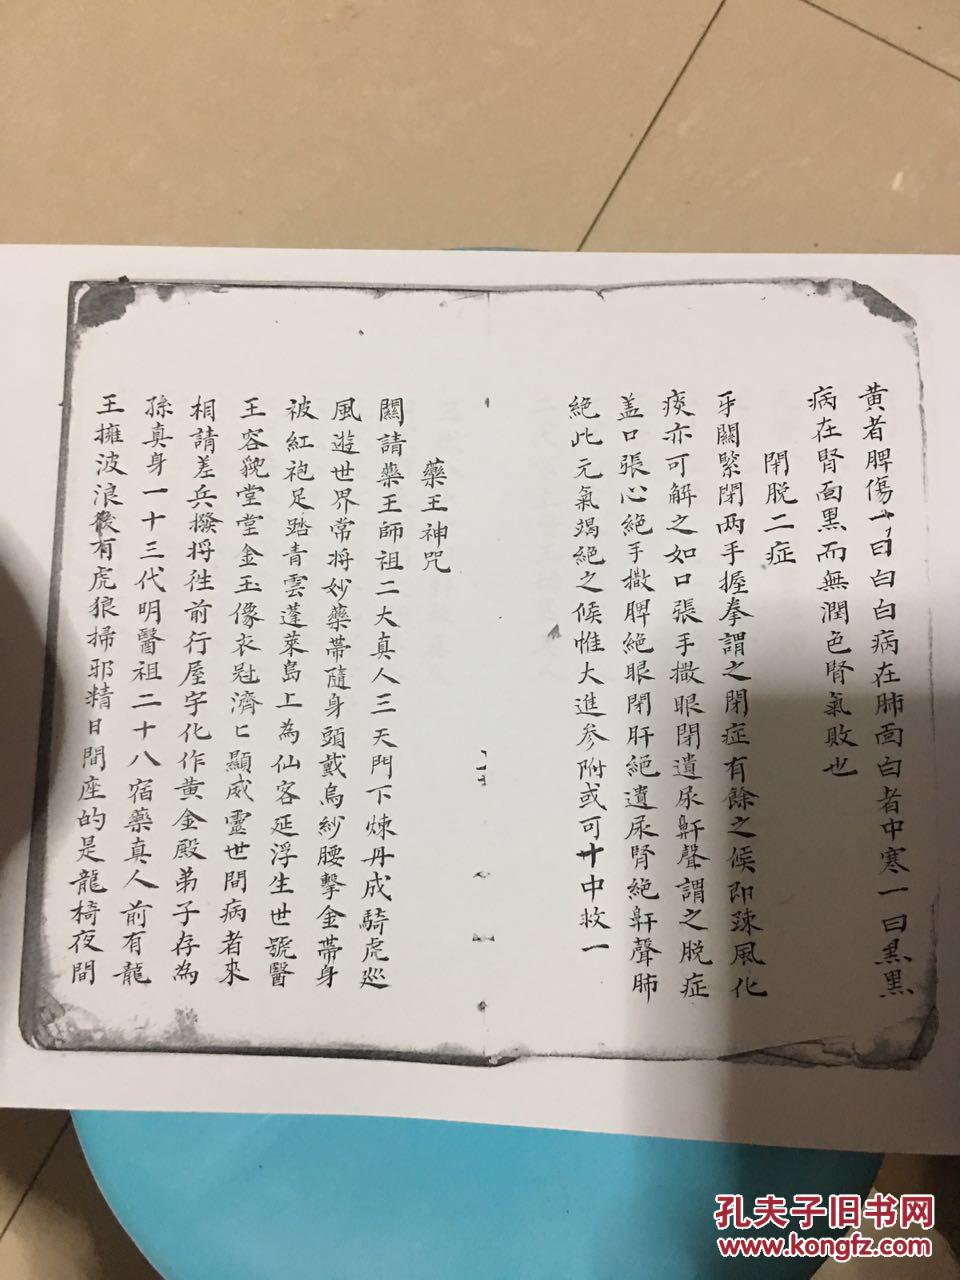 黃者脾傷一曰白白病在肺面白者中寒一曰黒黒
病在腎面黒而無潤色腎氣敗也
閉脱二症
牙關緊閉两手握拳謂之閉症有餘之候即踈風化
痰亦可解之如口張手撒眼閉遺尿鼾聲謂之脱症
盖口張心絕手撒脾絕眼閉肝絕遺尿腎絕鼾聲肺
絕此元氣竭絕之候惟大進参附或可十中救一
藥王神咒
關請藥王師祖二大真人三天門下煉丹成騎虎巡
風遊世界常将妙藥帯隨身頭戴烏紗腰擊金帯身
被紅袍足踏青雲蓬萊島上為仙客延浮生世號醫
王容貌堂堂金玉像衣冠濟匕顯威靈世間病者來
相請差兵撥将徃前行屋宇化作黄金殿弟子存為
孫真身一十三代明醫祖二十八宿藥真人前有龍
王擁波浪後有虎狼掃邪精日間座的是龍椅夜間
孔夫子旧书网
www.kongfz.com